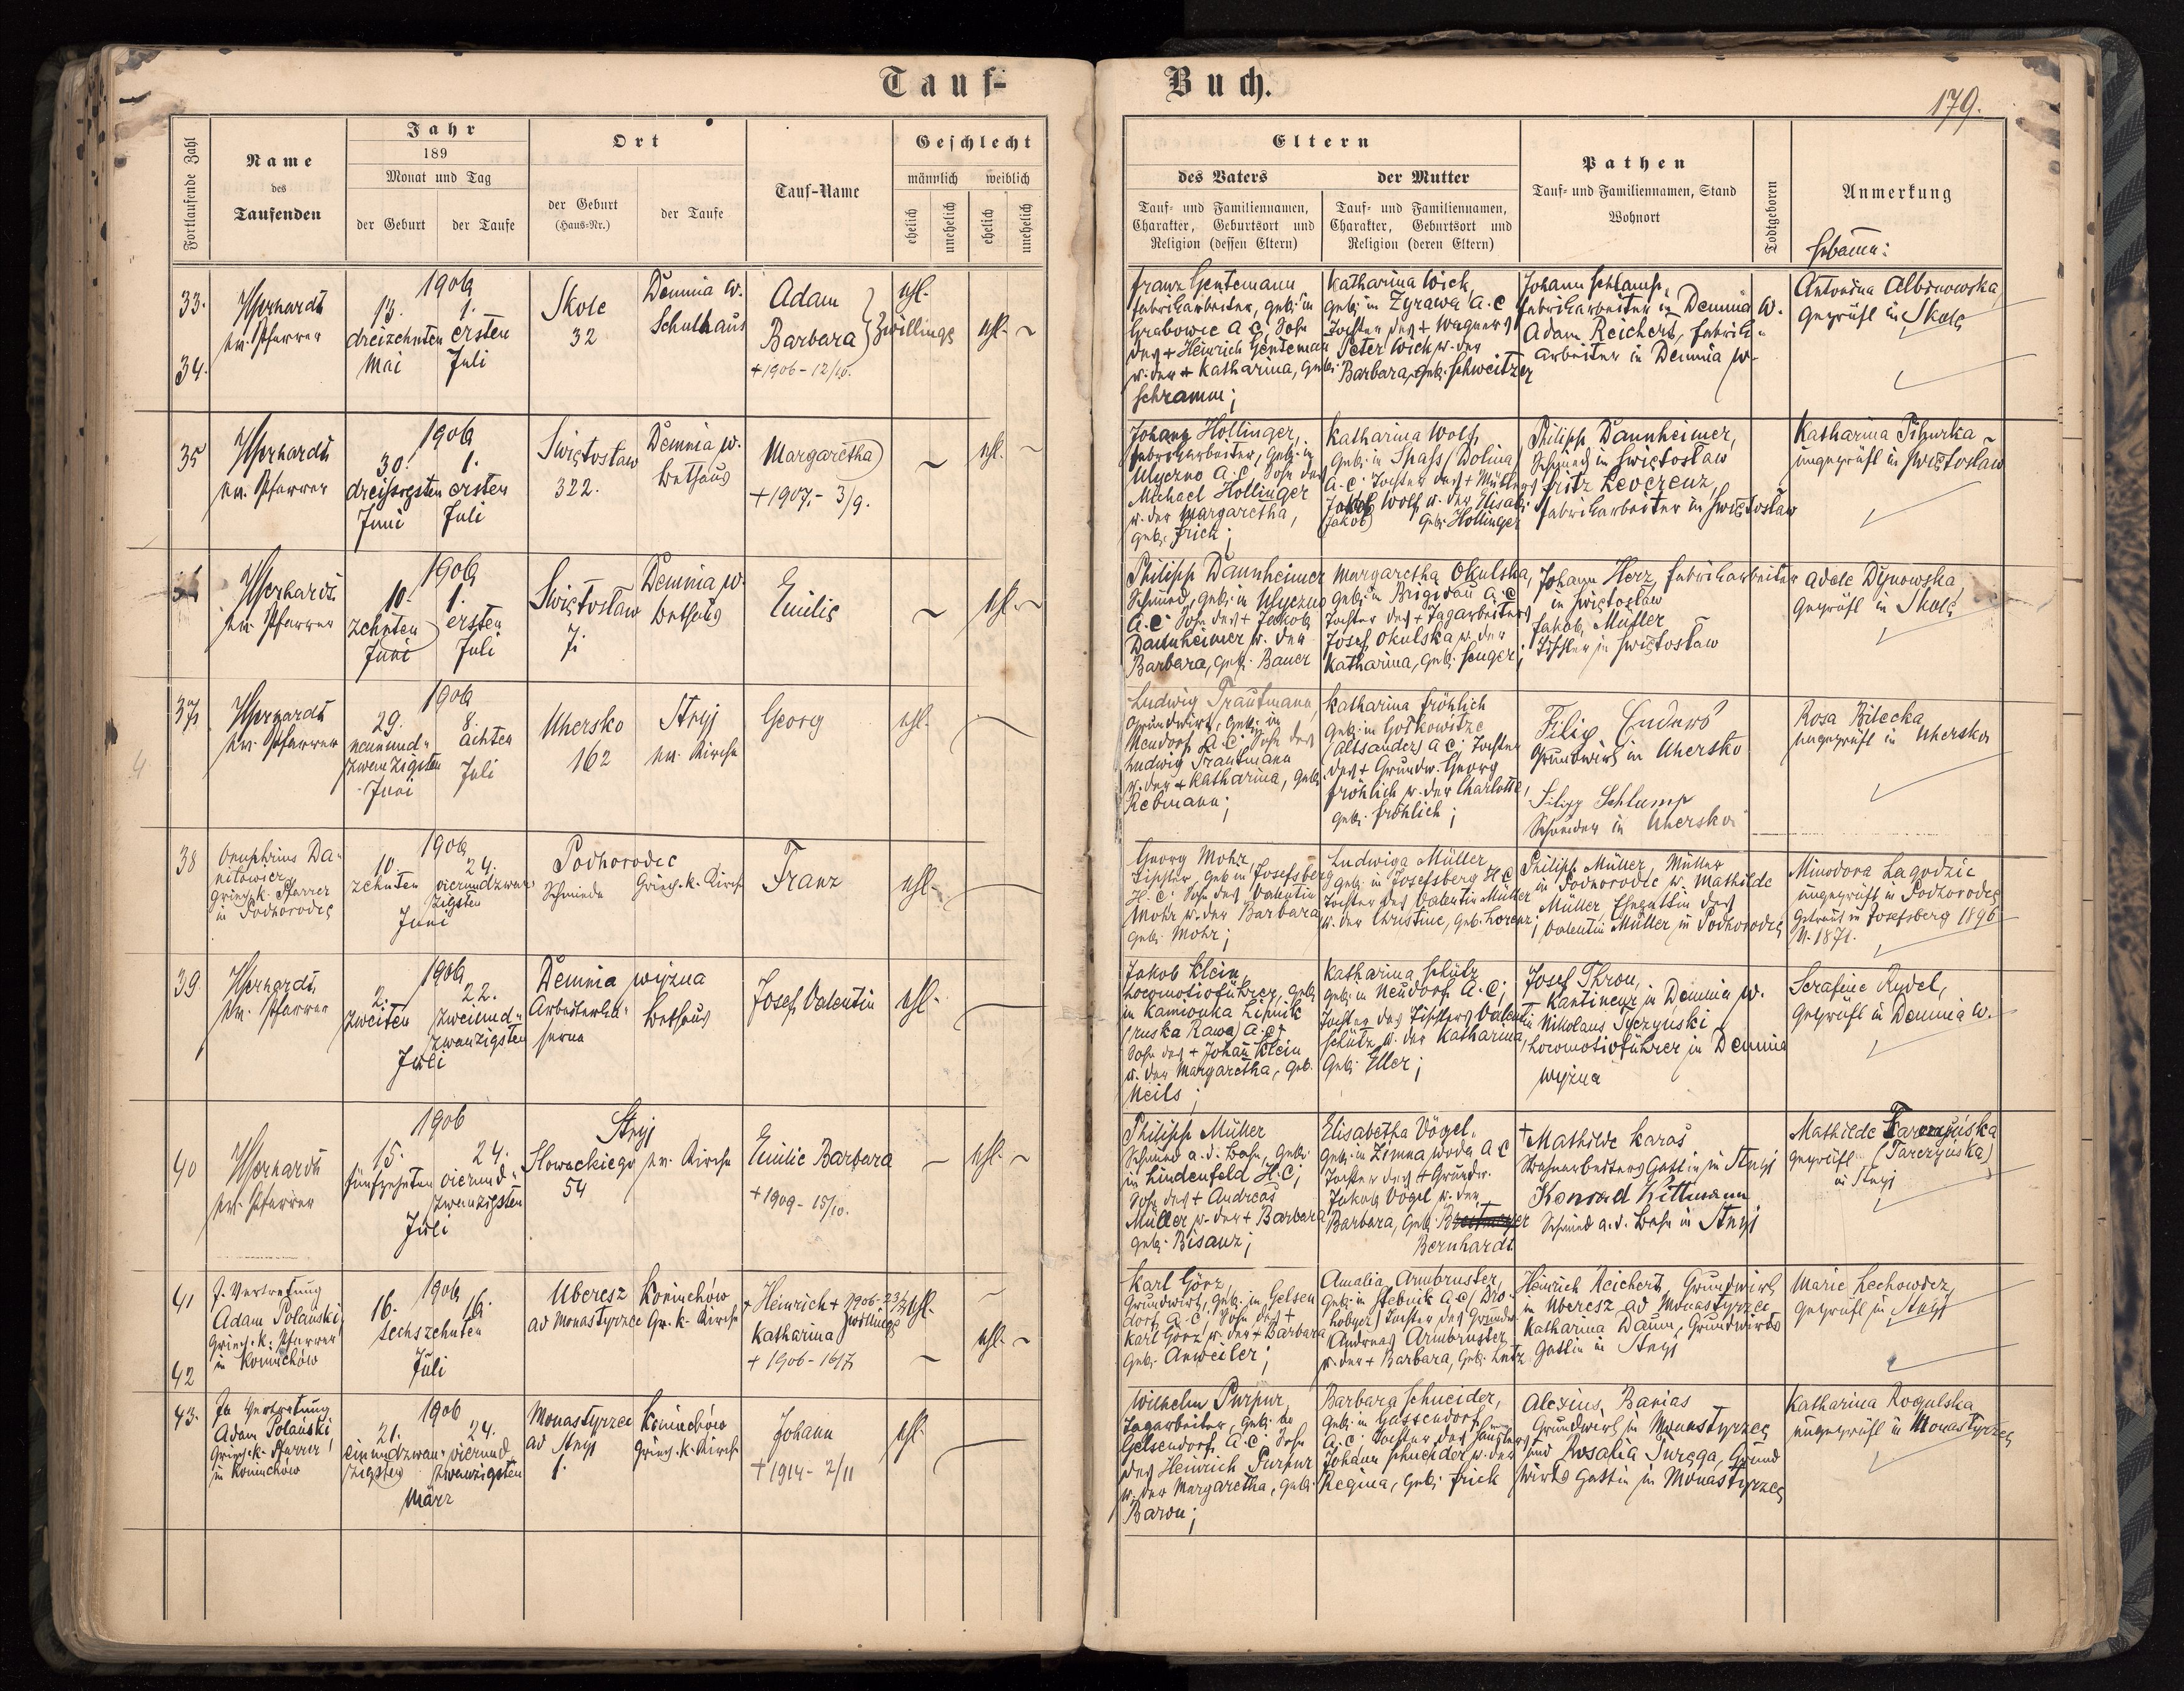 Tauf-
Buch.
179.
Fortlaufende Zahl
Name
des
Taufenden
Jahr
189
Monat und Tag
der Geburt
der Taufe
Ort
der Geburt
(Haus-Nr.)
der Taufe
Tauf-Name
Geschlecht
männlich
weiblich
ehelich
unehelich
ehelich
unehelich
Eltern
des Vaters
der Mutter
Tauf- und Familiennamen,
Charakter, Geburtsort und
Religion (dessen Eltern)
Tauf- und Familiennamen,
Charakter, Geburtsort und
Religion (deren Eltern)
Pathen
Tauf- und Familiennamen, Stand
Wohnort
Todtgeboren
Anmerkung
Hebamme:
33.
34.
ev. Pfarrer
1906
13. 1.
dreizehnten ersten
Mai Juli
Skole
32
Demnia w.
Schulhaus
Adam
Barbara
Zwillinge
+ 1906 - 12/10.
ehl.
ehl.
Franz Gentemann
Fabriksarbeiter, geb. in
Grabowce A.C. Sohn
des + Heinrich Gentemann
u. der + Katharina, geb.
Schramm;
Katharina Wick,
geb. in Zyrawa A.C
Tochter des + Wagners
Peter Wick u. der
Barbara, geb. Schweitzer
Johann Schlamp,
Fabriksarbeiter in Demnia w.
Adam Reichert, Fabriks-
arbeiter in Demnia w.
Antonina Albinowska,
geprüft in Skole
35
ev. Pfarrer
1906
30. 1.
dreissigsten ersten
Juni Juli
Swiętosław
322.
Demnia w.
Bethaus
Margaretha
+ 1907. - 3/9.
ehl.
Johann Hollinger,
Fabriksarbeiter, geb. in
Ulyczno A.C. Sohn des
Michael Hollinger
u. der Margaretha,
geb. Frick;
Katharina Wolf,
geb. in Spass (Dolina)
A.C. Tochter des + Müllers
Wolf u. der Elisab.
(Jakob) geb. Hollinger
Philipp Dannheimer,
Schmied in Swiętosław
Fritz Leverenz,
Fabriksarbeiter in Swiętosław
Katharina
ungeprüft in Swiętosław
ev. Pfarrer
1906
10. 1.
zehnten ersten
Juni Juli
Swiętosław
7.
Demnia w.
Bethaus
Emilie
ehl.
Philipp Dannheimer
Schmied, geb. in Ulyczno
A.C. Sohn des + Jakob
Dannheimer u. der
Barbara, geb. Bauer
Margaretha Okulska,
geb. in Brigidau A.C.
Tochter des + Tagarbeiters
Josef Okulska u. der
Katharina, geb. Senger;
Johann Herz, Fabriksarbeiter
in Swiętosław
Jakob Müller
Tischler in Swiętosław
Adele Dynowska,
geprüft in Skole
37
ev. Pfarrer
1906
29. 8.
neunund- achten
zwanzigsten
Juni Juli
Uhersko
162
Stryj
ev. Kirche
Georg
ehl.
Ludwig Trautmann,
Grundwirt, geb. in
Neudorf A.C. Sohn des
Ludwig Trautmann
u. der + Katharina, geb.
Rebmann;
Katharina Fröhlich
geb. in Gołkowitze
(Altsandez) A.C; Tochter
des + Grundw. Georg
Fröhlich u. der Charlotte,
geb. Fröhlich;
Filip
Grundwirt in Uhersko
Filipp Schlamp
Schneider in Uhersko
Rosa Bilecka,
ungeprüft in Uhersko
38
Onuphrius Da-
nilowicz,
Griech. k. Pfarrer
in Podhorodce
1906
10. 24.
zehnten vierundzwan-
zigsten
Juni
Podhorodce
Schmiede
Griech. k. Kirche
Franz
ehl.
Georg Mohr,
Tischler, geb. in Josefsberg
H.C; Sohn des Valentin
Mohr u. der Barbara
geb. Mohr;
Ludwiga Müller
geb. in Josefsberg H.C
Tochter des Valentin Müller
u. der Christine, geb. Lorenz;
Philipp Müller, Müller
in Podhorodce u. Mathilde
Müller, Ehegattin des
Valentin Müller in Podhorodce
Minodora Lagodzic
ungeprüft in Podhorodce
Getraut in Josefsberg 1896
N. 1871.
39.
ev. Pfarrer
1906
2. 22.
zweiten zweiund-
zwanzigsten
Juli
Demnia wyzna
Arbeiterka-
serna
Bethaus
Josef Valentin
ehl.
Jakob Klein,
Locomotivführer, geb.
in Kamionka Lipnik
(ruska Rawa) A.C.
Sohn des + Johann Klein
u. der Margaretha, geb.
Neils;
Katharina Schütz
geb. in Neudorf A.C;
Tochter des Tischlers Valentin
Schütz u. der Katharina,
geb. Eller;
Josef Thron,
Kantineur in Demnia w.
Nikolaus Tyczynski
Locomotivführer in Demnia
wyzna
Serafine Rydel,
geprüft in Demnia w.
40
ev. Pfarrer
1906
15. 24.
fünfzehnten vierund-
zwanzigsten
Juli
Stryj
Slowackiego
54
ev. Kirche
Emilie Barbara
+ 1909 - 15/10.
ehl.
Philipp Müller
Schmied a. d. Bahn, geb.
in Lindenfeld H.C;
Sohn des + Andreas
Müller u. der + Barbara
geb. Bisanz;
Elisabetha Vögel,
geb. in Zimna woda A C
Tochter des + Grundw.
Jakob Vogel u. der
Barbara, geb.
Bernhardt
+ Mathilde Karaś
Gattin in Stryj
Konrad Kittmann
Schmied a. d. Bahn in Stryj
Mathilde
geprüft (Tarczyńska)
in Stryj
41
42
I. Vertretung
Adam Polański,
Griech. k. Pfarrer
in Koniuchów
1906
16. 16.
sechszehnten
Juli
Uberesz
ad Monastyrzec
Koniuchów
Gr. k. Kirche
+ Heinrich + 1906 - 23/7
Zwillinge
Katharina
+ 1906 - 16/7
ehl.
ehl.
Karl Görz,
Grundwirt, geb. in Gelsen
dorf A.C, Sohn des +
Karl Görz u. der + Barbara
geb. Anweiler;
Amalia Armbruster,
geb. in Stebnik A.C, (Dro-
hobycz) Tochter des Grundw.
Andreas Armbruster
u. der + Barbara, geb. Lutz
Heinrich Reichert, Grundwirt
in Uberesz ad Monastyrzec
Katharina Daum, Grundwirts
Gattin in Stryj
Marie Lechowicz,
geprüft in Stryj
43.
In Vertretung
Adam Polański,
Griech. k. Pfarrer
in Koniuchów
1906
21. 24.
einundzwan- vierund-
zigsten zwanzigsten
März
Monastyrzec
ad Stryj
1.
Koniuchów
Griech. k. Kirche
Johann
+ 1914 - 2/11
ehl.
Wilhelm Purpur,
Tagarbeiter, geb. in
Gelsendorf A.C. Sohn
des Heinrich Purpur
u. der Margaretha, geb.
Baron;
Barbara Schneider,
geb. in Gassendorf
A.C. Tochter des
Johann Schneider u. der
Regina, geb. Frick
Alexius Banias
Grundwirt in Monastyrzec
und Rosalia Turęga, Grund
wirts Gattin in Monastyrzec
Katharina Rogulska
ungeprüft in Monastyrzec